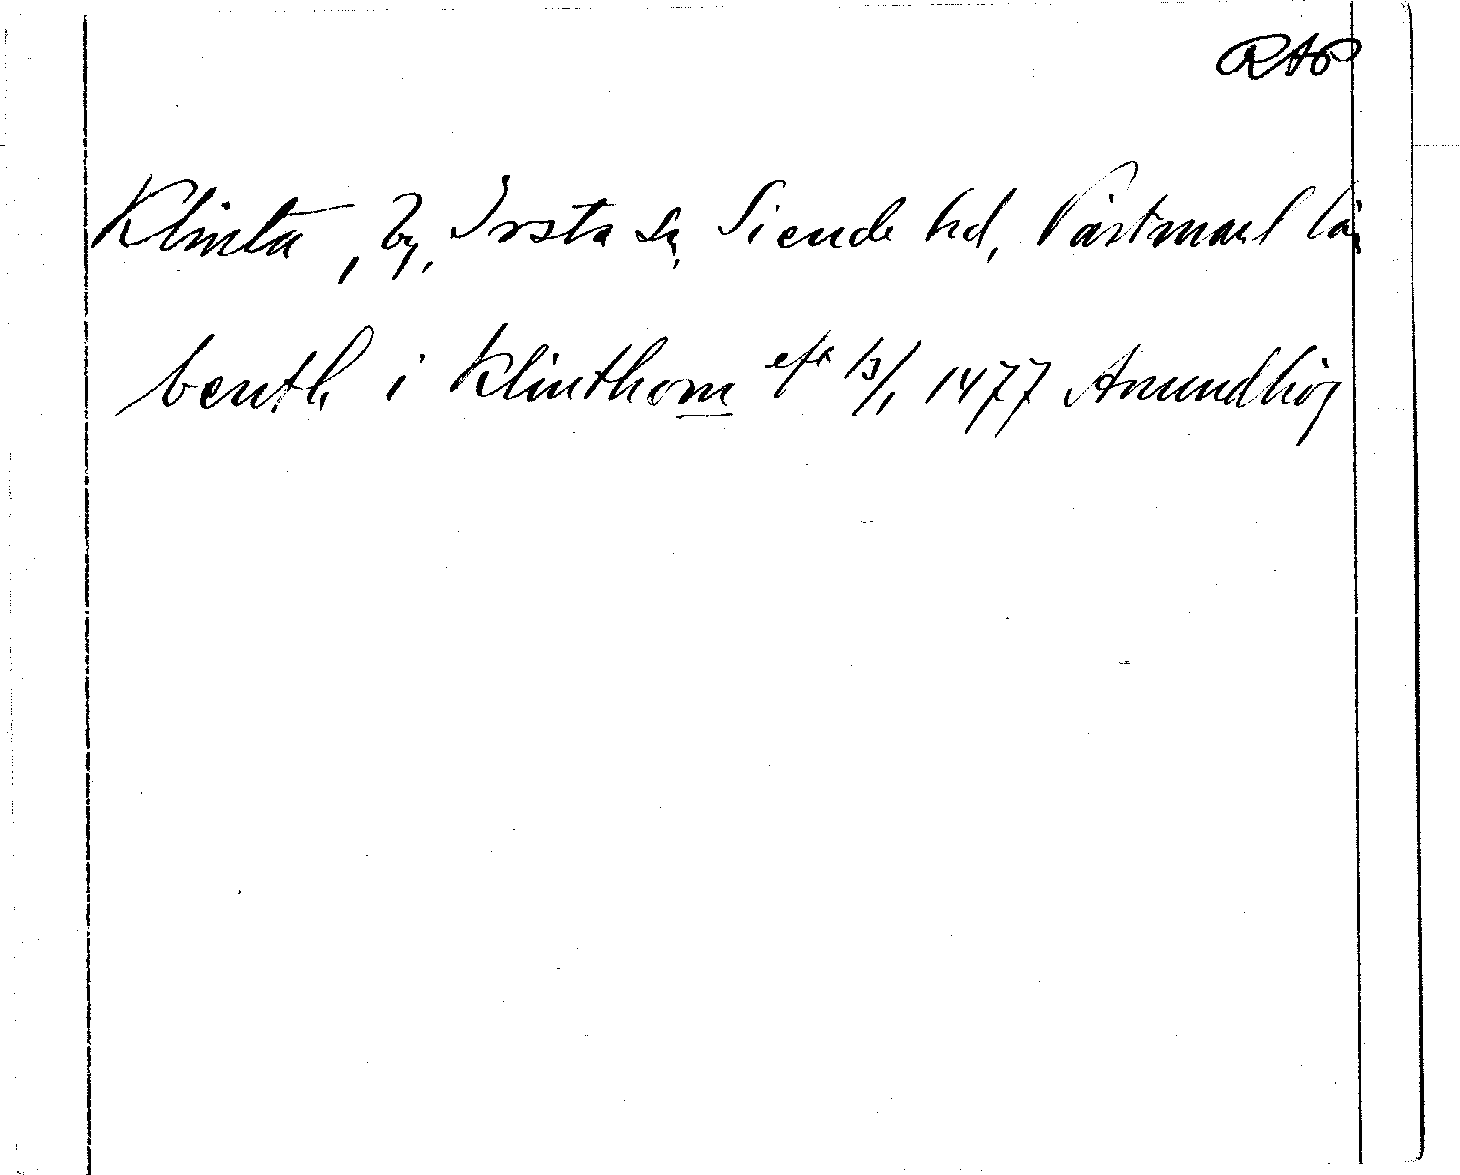 RAP
Klinta, by, Irsta sn, Siende hd, Västmanl lä
benth i Klinthom eft 13/1 1477 Amundhög